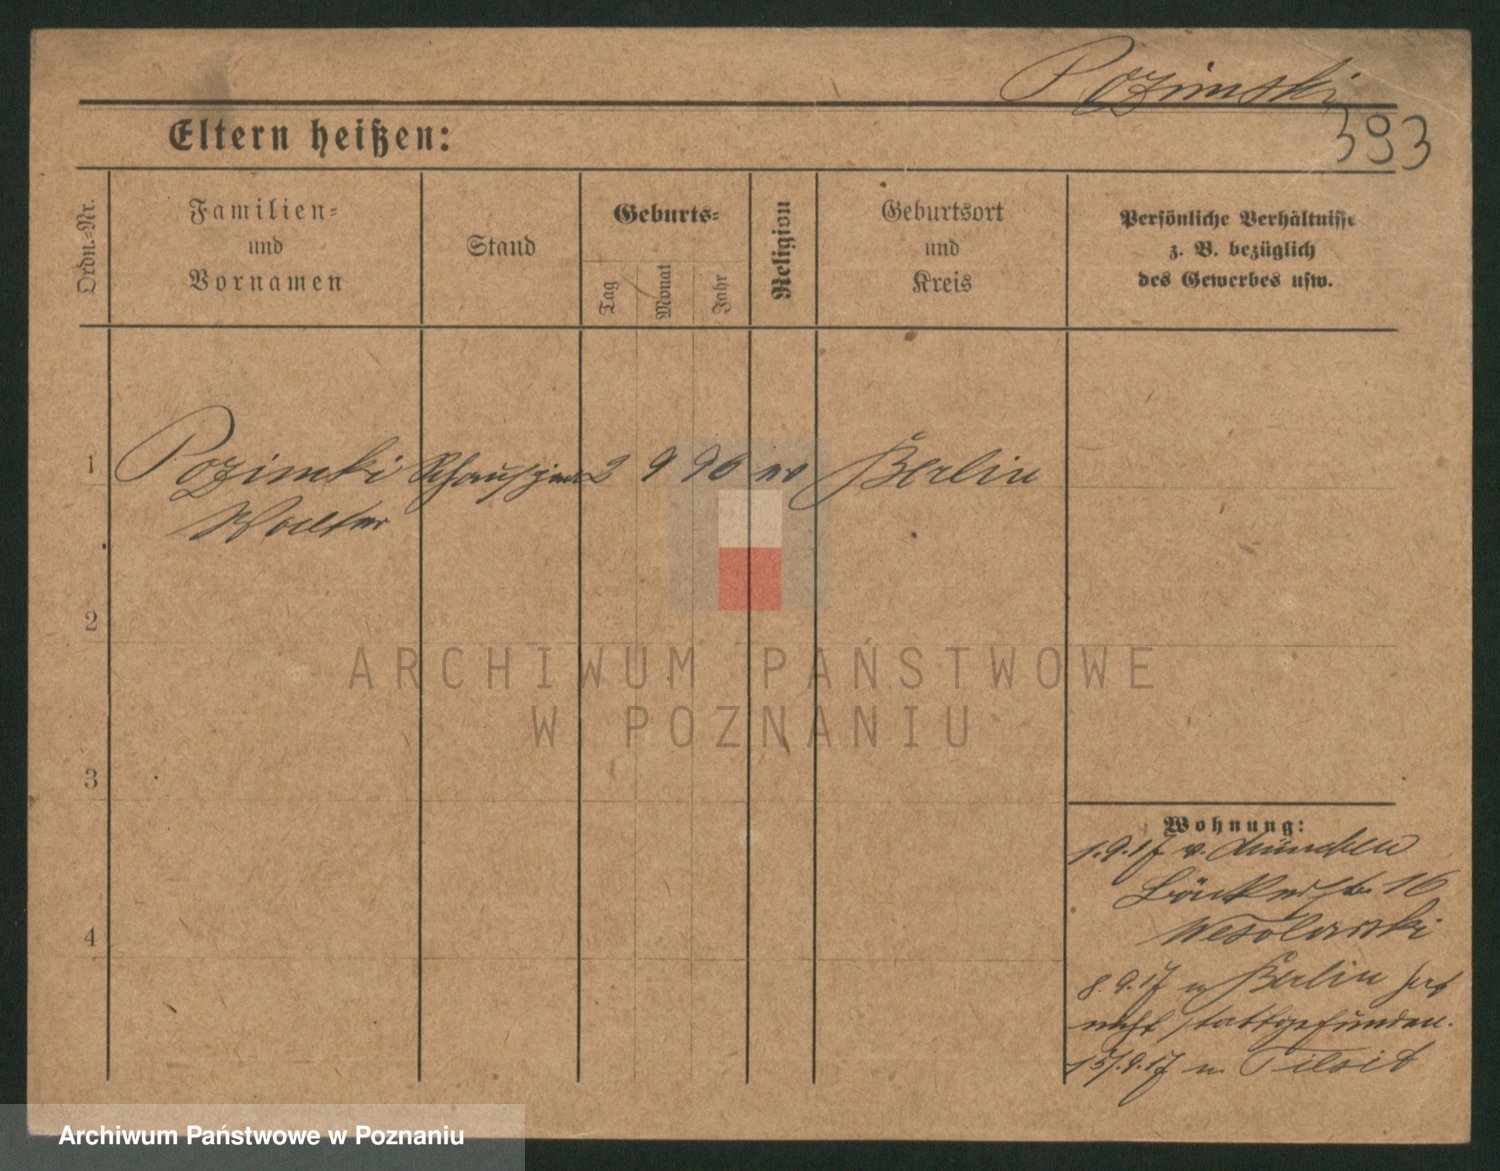 Pozimski
393
Eltern heißen:
Ordn.-Nr.
Familien-
und
Vornamen
Stand
Geburts-
Tag
Monat
Jahr
Religion
Geburtsort
und
Kreis
Persönliche Verhältnisse
z. B. bezüglich
des Gewerbes usw.
1 Pozimski 2 9 96 ev Berlin
Walter
2
3
4
Wohnung:
1.9.17 v. München
16
Wesolowski
8.9.17 n Berlin hat
nicht stattgefunden.
15/.9.17 n Tilsit
ARCHIWUM PAŃSTWOWE
W POZNANIU
Archiwum Państwowe w Poznaniu